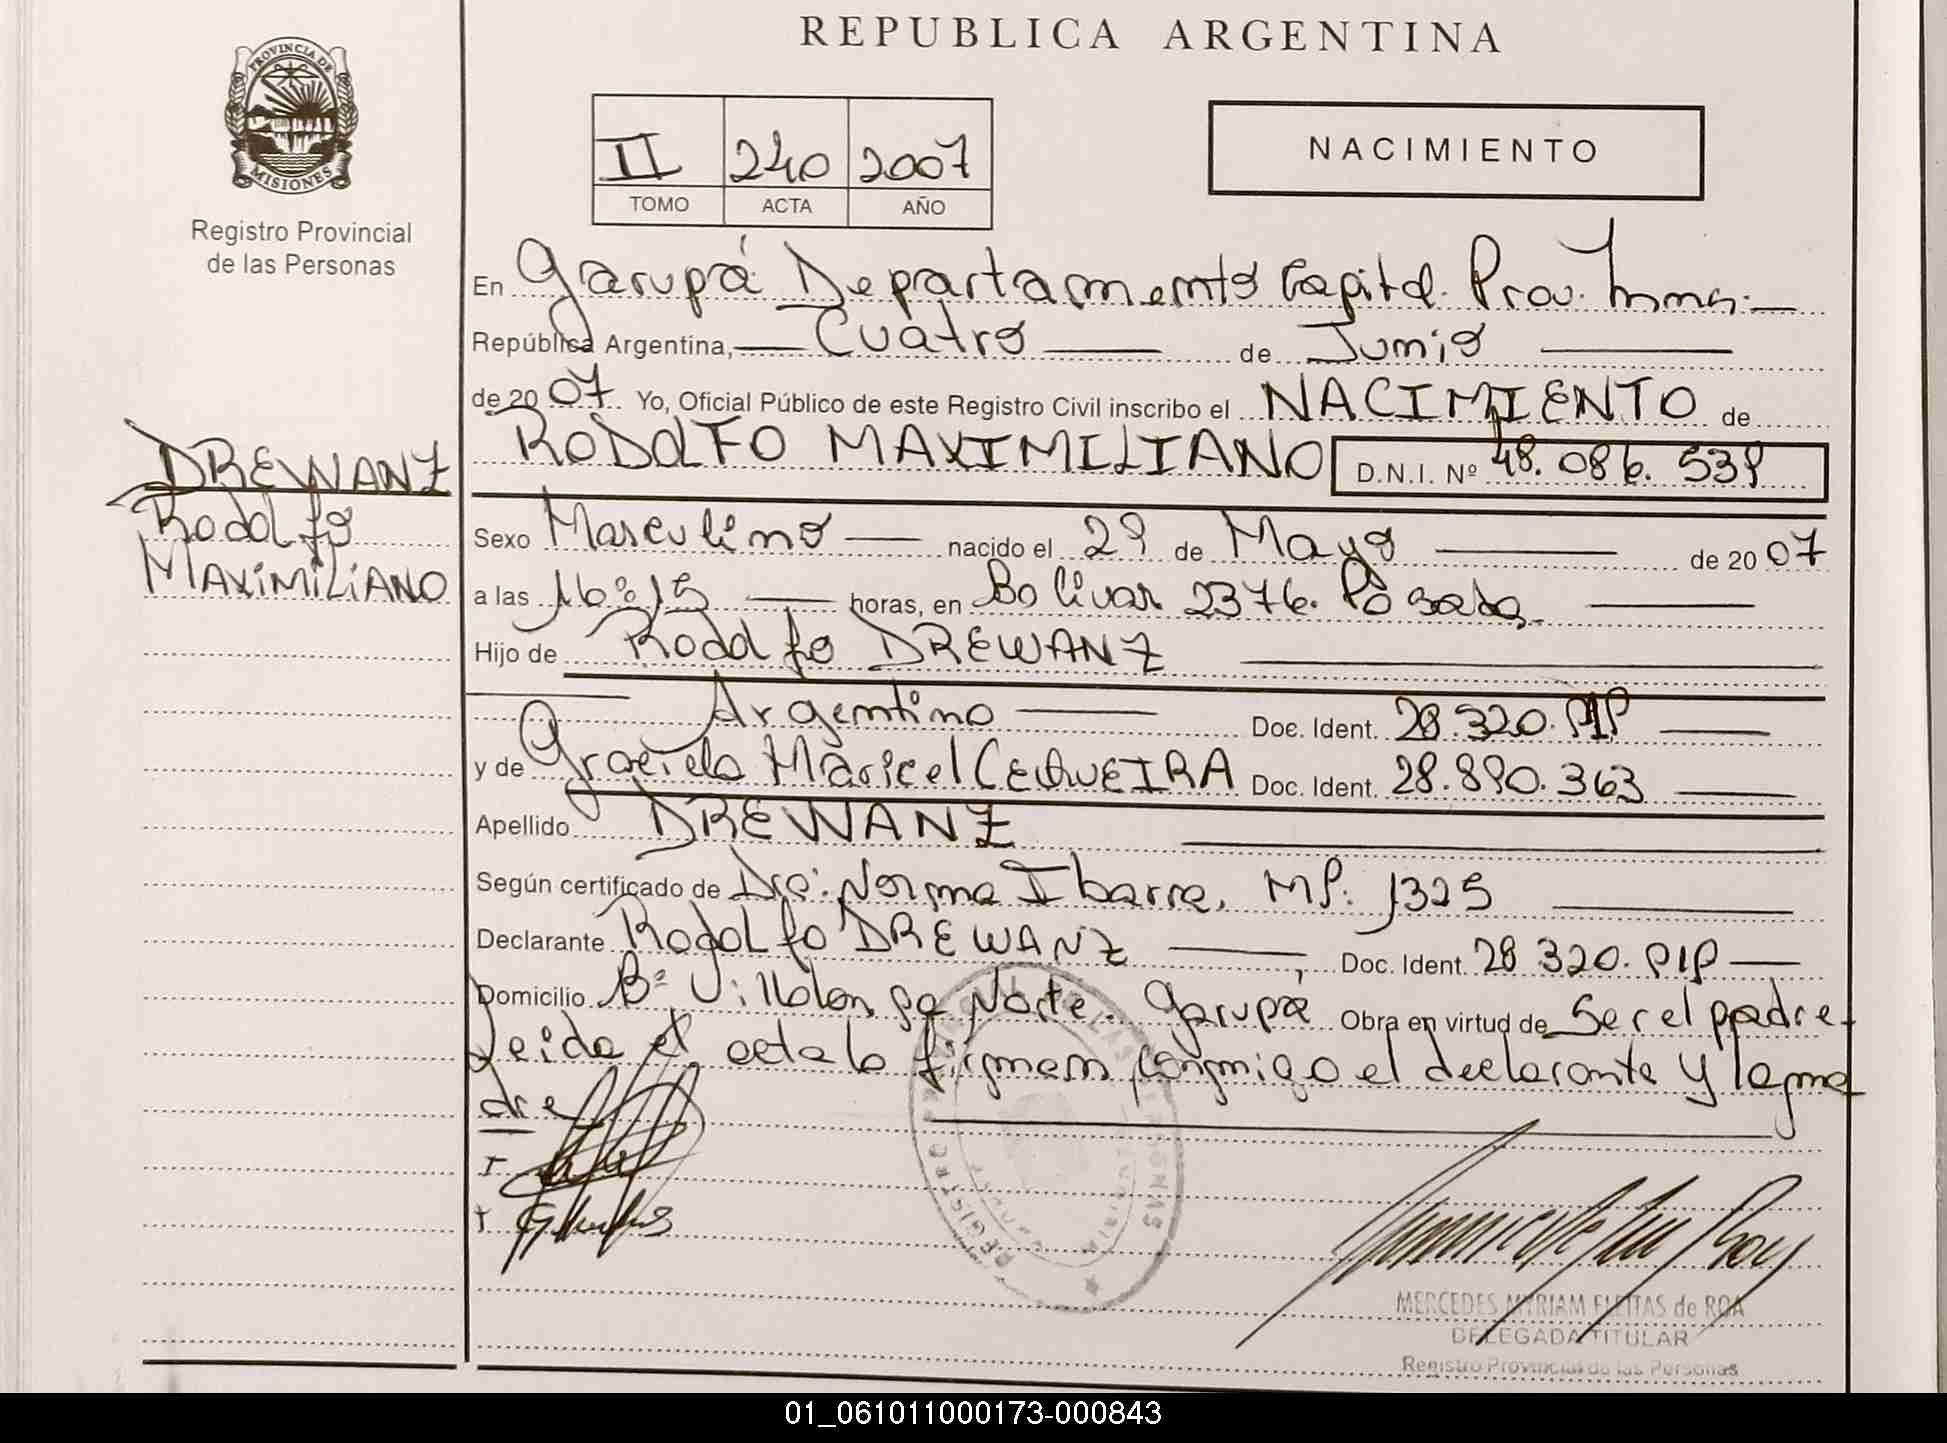 REPUBLICA ARGENTINA
PROVINCIA DE
MISIONES
Registro Provincial
de las Personas
II 240 2007
TOMO ACTA AÑO
NACIMIENTO
En Garupá Departamento Capital. Prov. Mnes.
República Argentina, Cuatro de Junio
de 2007 Yo, Oficial Público de este Registro Civil inscribo el NACIMIENTO de
RODOLFO MAXIMILIANO D.N.I. Nº 48.086.539
DREWANZ
Rodolfo
MAXIMILIANO
Sexo Masculino nacido el 29 de Mayo de 2007
a las 16:15 horas, en Bolivar 2376. Posadas.
Hijo de Rodolfo DREWANZ
Argentino Doc. Ident. 28.320.919
y de Graciela Maricel CERQUEIRA Doc. Ident. 28.890.363
Apellido DREWANZ
Según certificado de Dra: Norma Ibarra, MP: 1325
Declarante Rodolfo DREWANZ, Doc. Ident. 28 320.919
Domicilio Bº Villalonga Norte. Garupá Obra en virtud de Ser el padre.
Leida el acta la firman conmigo el declarante y la ma
dre
REGISTRO PROVINCIAL DE LAS PERSONAS
MERCEDES MYRIAM FLEITAS de ROA
DELEGADA TITULAR
Registro Provincial de las Personas
01_061011000173-000843